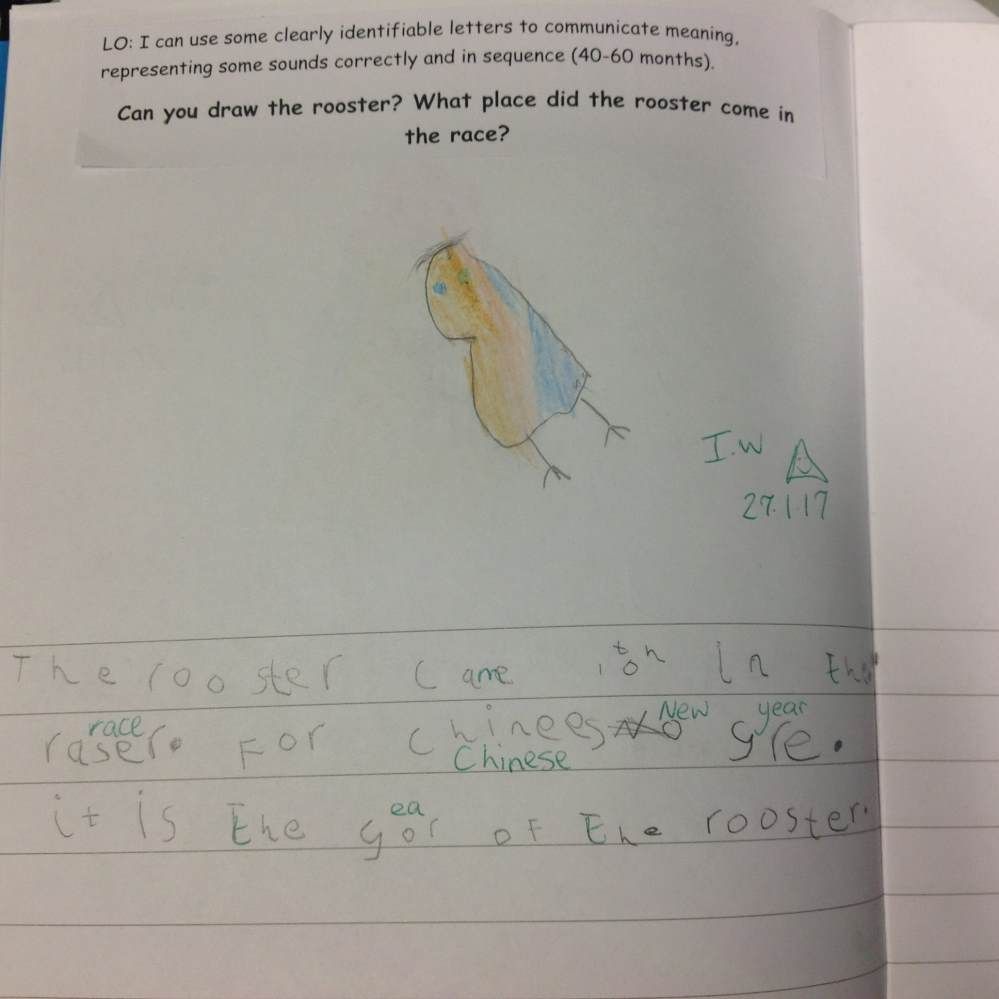 LO: I can use some clearly identifiable letters to communicate meaning,
representing some sounds correctly and in sequence (40-60 months).
Can you draw the rooster? What place did the rooster come in
the race?
I.W
27.1.17
The rooster came 10th in the
race
raser. For chinees New year
Chinese
gre.
ea
it is the gor of the rooster.